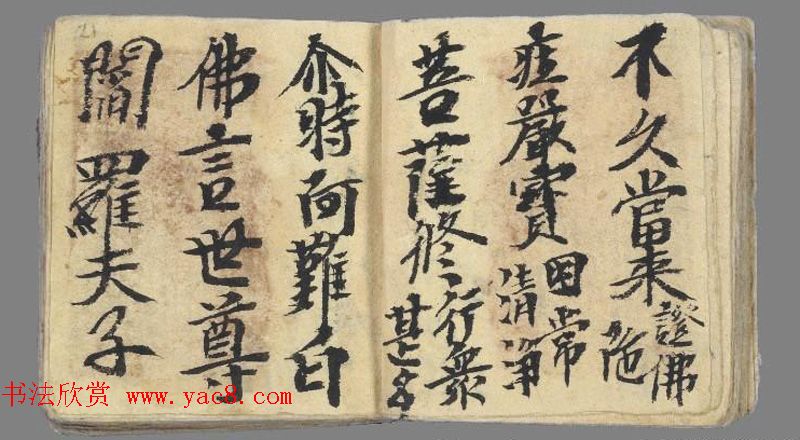 不久當來證佛陁
庄嚴寶囯常清淨
菩薩修行衆甚多
尒時阿難白
佛言世尊
閻羅天子
21
书法欣赏 www.yac8.com